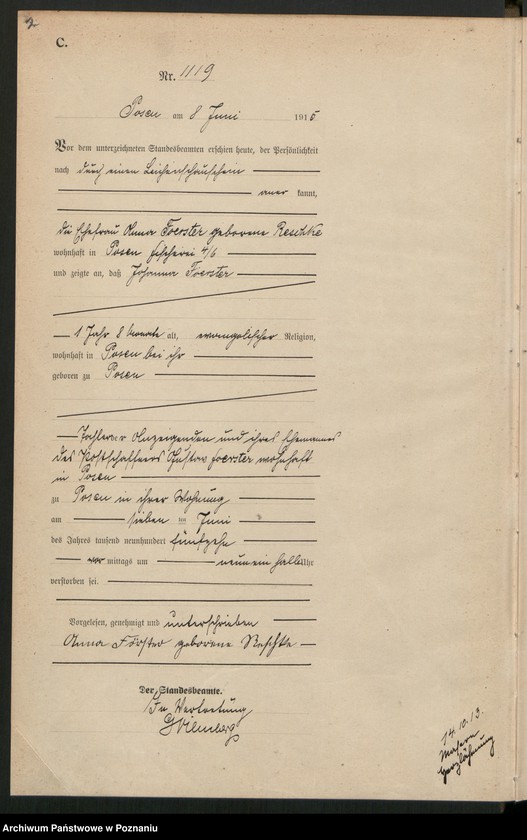 2
C.
Nr. 1119
Posen am 8 Juni 1915
Vor dem unterzeichneten Standesbeamten erschien heute, der Persönlichkeit
nach durch einen Leichenschauschein
aner kannt,
die Ehefrau Anna Foerster geborene Reschke
wohnhaft in Posen Fischerei 4/6
und zeigte an, daß Johanna Foerster
1 Jahr 8 Monate alt, evangelischer Religion,
wohnhaft in Posen bei ihr
geboren zu Posen
Tochter der Anzeigenden und ihres Ehemannes
des Postschaffners Gustav Foerster wohnhaft
in Posen
zu Posen in ihrer Wohnung
am sieben ten Juni
des Jahres tausend neunhundert fünfzehn
vor mittags um neunein halb Uhr
verstorben sei.
Vorgelesen, genehmigt und unterschrieben
Anna Förster geborene Reschke
Der Standesbeamte.
In Vertretung
14.10.13.
Masern
Archiwum Państwowe w Poznaniu